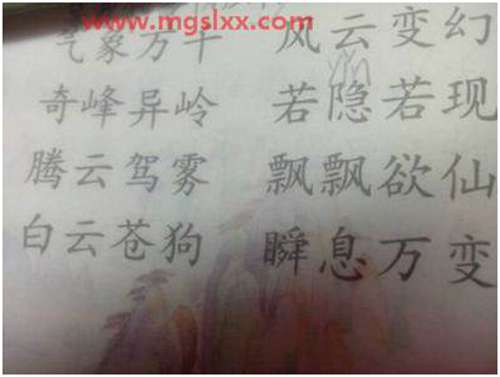 www.mgslxx.com
气象万千 风云变幻
奇峰异岭 若隐若现
腾云驾雾 飘飘欲仙
白云苍狗 瞬息万变